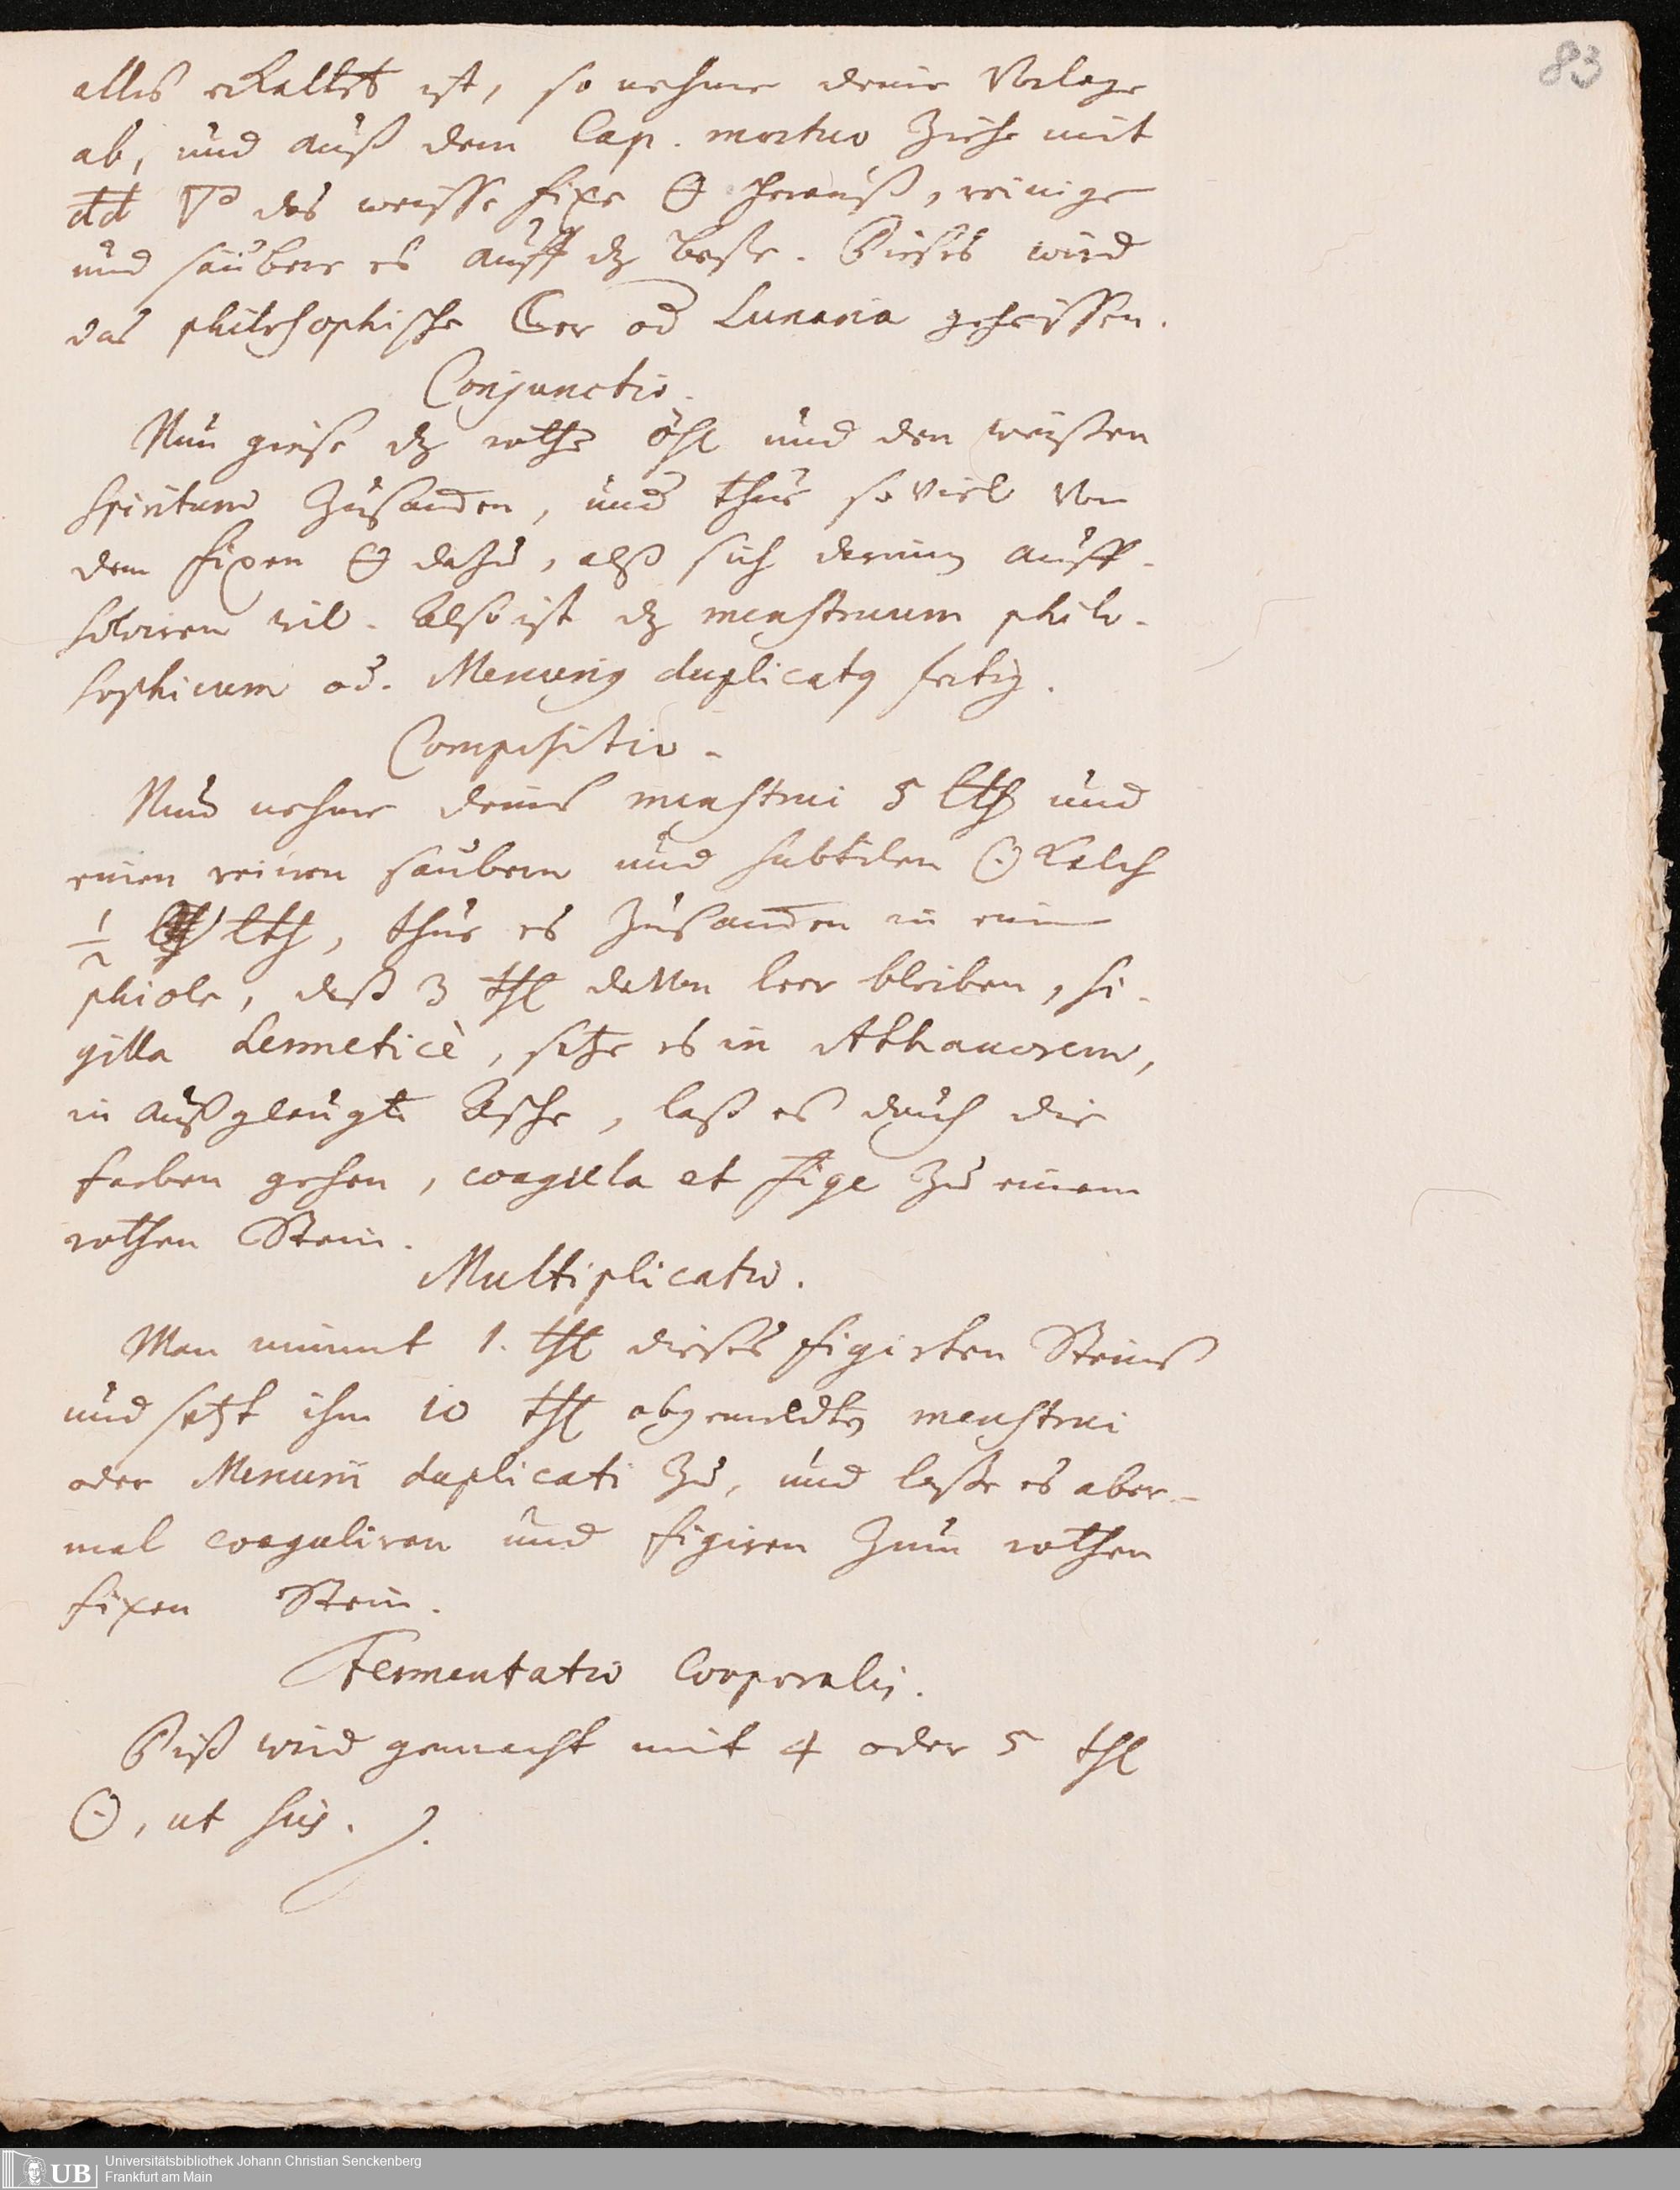 83
alles erkaltet ist, so nehme deine Vorlage
ab, und auß dem Cap. mortuo ziehe mit
dd 🜄 das weisse fixe 🜔 herauß, reinige
und säubere es auff dz beste. Dieses wird
das philosophische od Lunaria geheissen.
Conjunctio.
Nun giese dz rothe öhl und den weißen
Spiritum zusam̅en, und thue so viel von
dem fixen 🜔 dazu, alß sich darinn auff-
solviren wil. Also ist dz menstruum philo-
sophicum od. Mercurig duplicatg fertig.
Compositio.
Nun nehme deines menstrui 5 lth und
einen reinen saubern und subtilen ☉ Kalch
½ lth, thue es zusam̅en in eine
phiole, daß 3 thl davon leer bleiben, si-
gilla hermeticè, setze es in Athanorem,
in außgelaugte Asche, laß es durch die
farben gehen, coagula et fige zu einem
rothen Stein.
Multiplicatio.
Man nimmt 1. thl dieses figirten Steins
und setzt ihm 10 thl obgemeldten menstrui
oder Mercurii duplicati zu, und lasse es aber-
mal coaguliren und figiren zum rothen
fixen Stein.
Fermentatio Corporalis.
Diß wird gemacht mit 4 oder 5 thl
☉, ut scis.
UB
Universitätsbibliothek Johann Christian Senckenberg
Frankfurt am Main